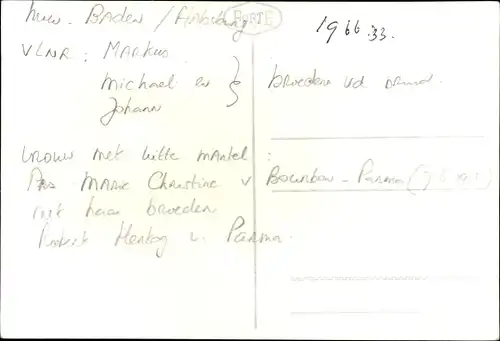 huw. BADEN / Fürstenberg
FORTE
1966.33.
VLNR: MARKUS
Michael en
Johann
broeders vd bruid.
vrouw met witte mantel:
Pns MARIE Christine v BOURBON-PARMA
met haar broeder
Robert Hertog v. PARMA.